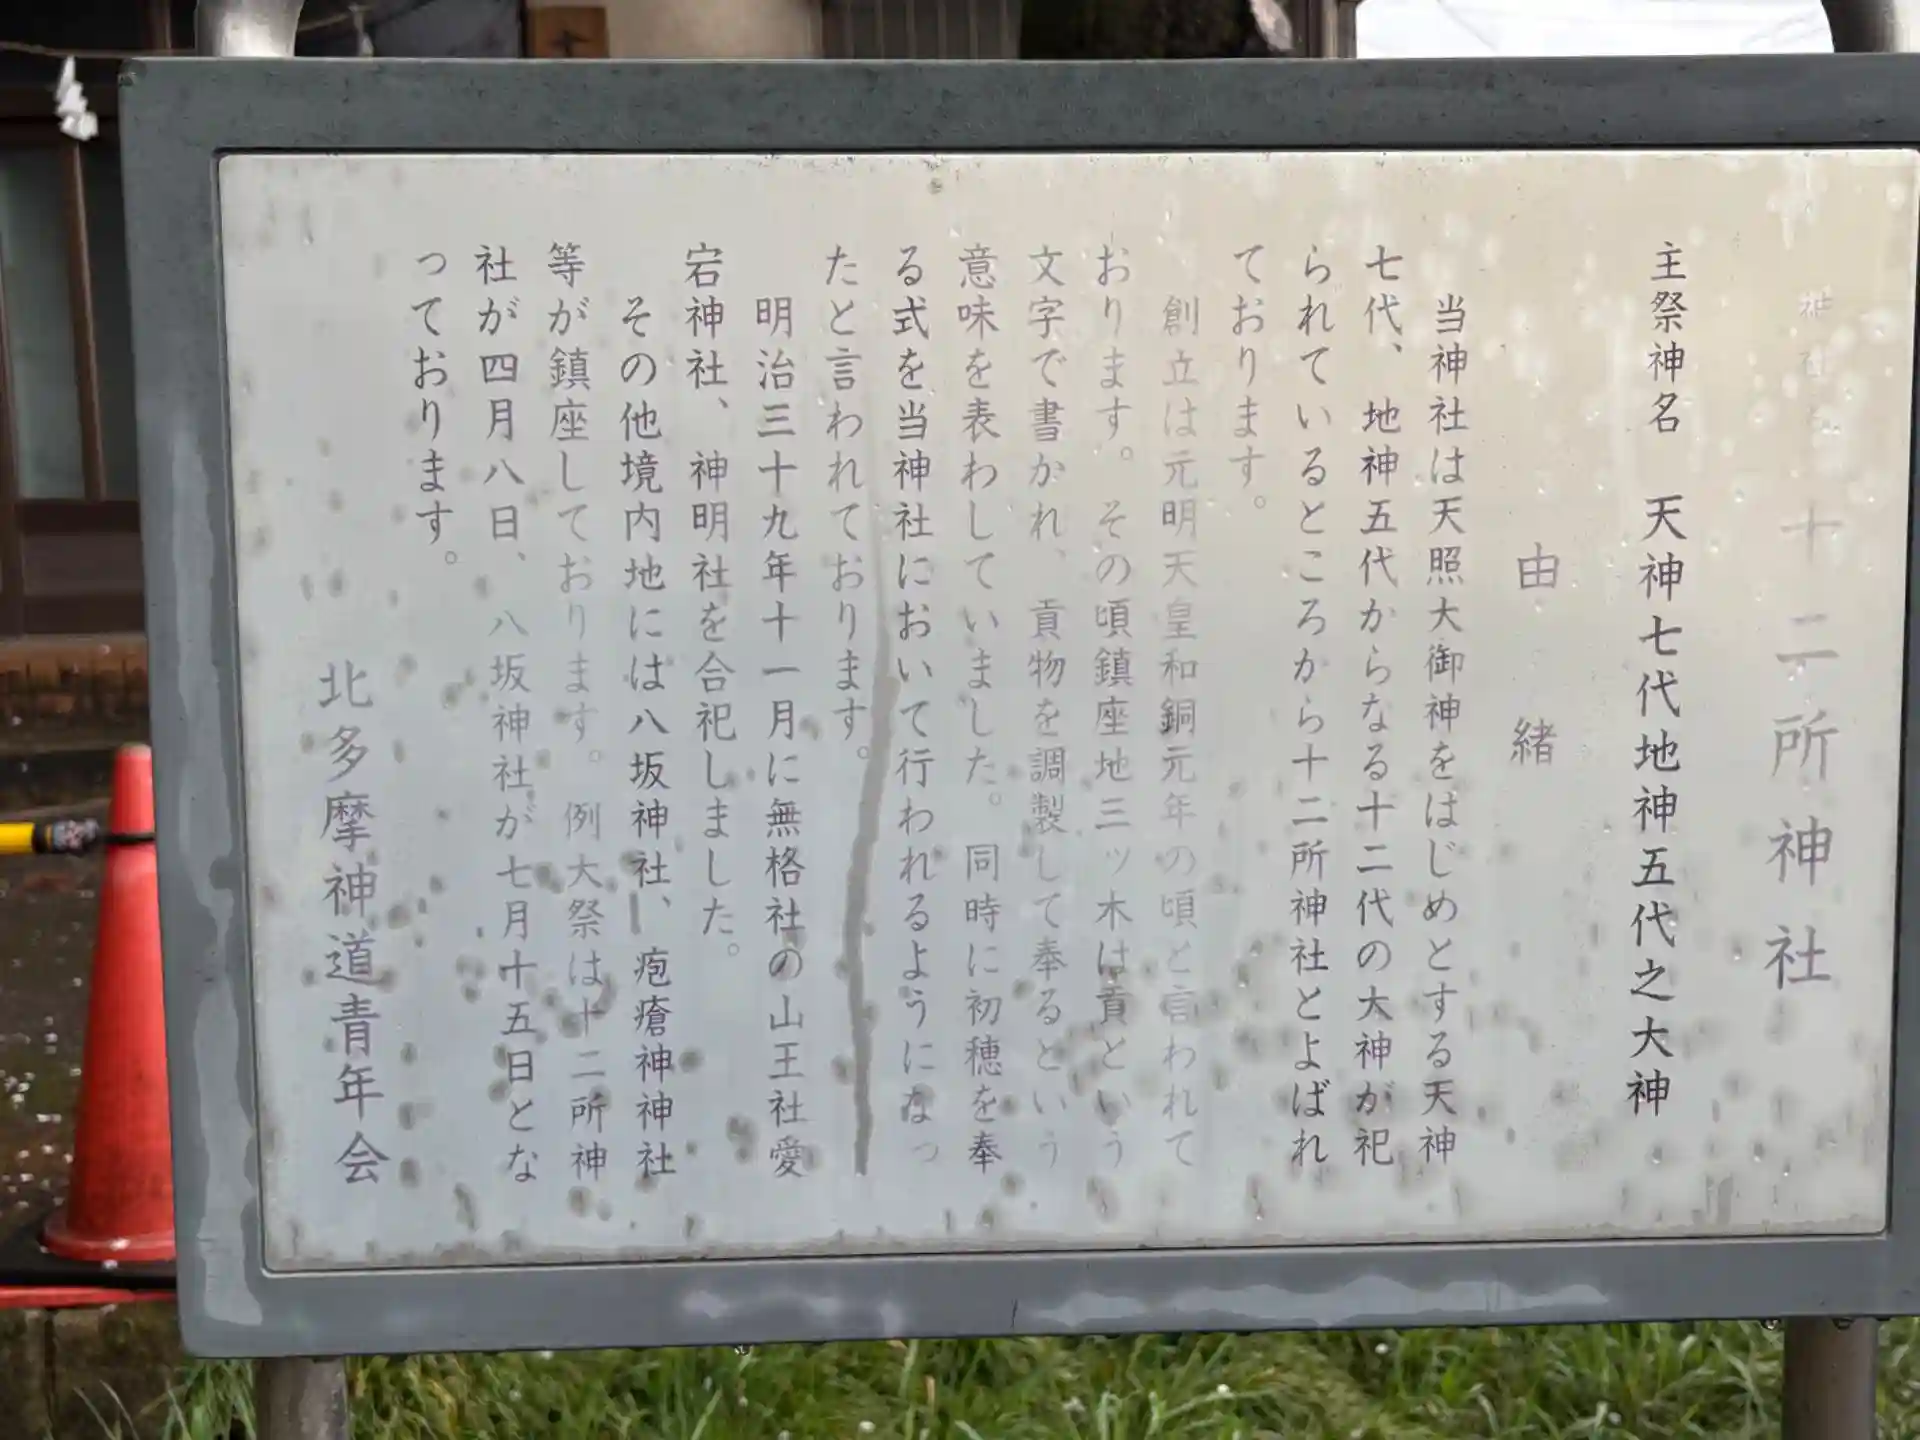 神社名 十二所神社
主祭神名 天神七代地神五代之大神
由緒
当神社は天照大御神をはじめとする天神
七代、地神五代からなる十二代の大神が祀
られているところから十二所神社とよばれ
ております。
創立は元明天皇和銅元年の頃と言われて
おります。その頃鎮座地三ッ木は貢という
文字で書かれ、貢物を調製して奉るという
意味を表わしていました。同時に初穂を奉
る式を当神社において行われるようになっ
たと言われております。
明治三十九年十一月に無格社の山王社愛
宕神社、神明社を合祀しました。
その他境内地には八坂神社、疱瘡神神社
等が鎮座しております。例大祭は十二所神
社が四月八日、八坂神社が七月十五日とな
っております。
北多摩神道青年会